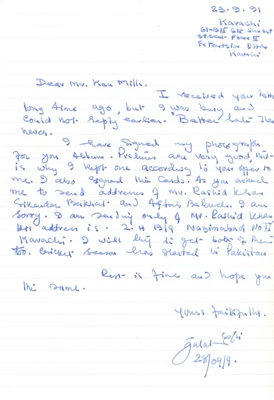 23.9.91
Karachi
Karachi
Dear Mr. Ken Mills.
I received your letter
long time ago, but I was busy and
could not reply earlier. "Better late than
never.
I have signed my photograph
for you album. Pictures are very good, that
is why I kept one according to your offer to
me I also signed the Cards. As you asked
me to send addresses of Mr. Rashid Khan
Sikander Bakht and Aftab Baluch. I am
sorry. I am sending only of Mr. Rashid Khan
His address is. 2 H 13/9 Nazimabad No.
Karachi. I will try to get both of them
too. Cricket season has started in Pakistan
Rest is fine and hope you
the same.
Yours faithfully.